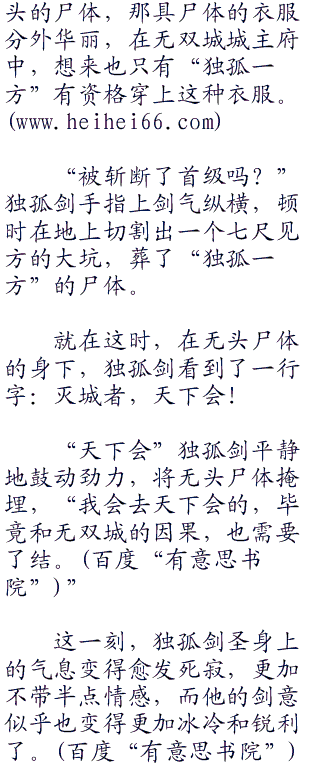 头的尸体，那具尸体的衣服
分外华丽，在无双城城主府
中，想来也只有“独孤一
方”有资格穿上这种衣服。
(www.heihei66.com)
“被斩断了首级吗？”
独孤剑手指上剑气纵横，顿
时在地上切割出一个七尺见
方的大坑，葬了“独孤一
方”的尸体。
就在这时，在无头尸体
的身下，独孤剑看到了一行
字：灭城者，天下会！
“天下会”独孤剑平静
地鼓动劲力，将无头尸体掩
埋，“我会去天下会的，毕
竟和无双城的因果，也需要
了结。(百度“有意思书
院”)”
这一刻，独孤剑圣身上
的气息变得愈发死寂，更加
不带半点情感，而他的剑意
似乎也变得更加冰冷和锐利
了。(百度“有意思书院”)